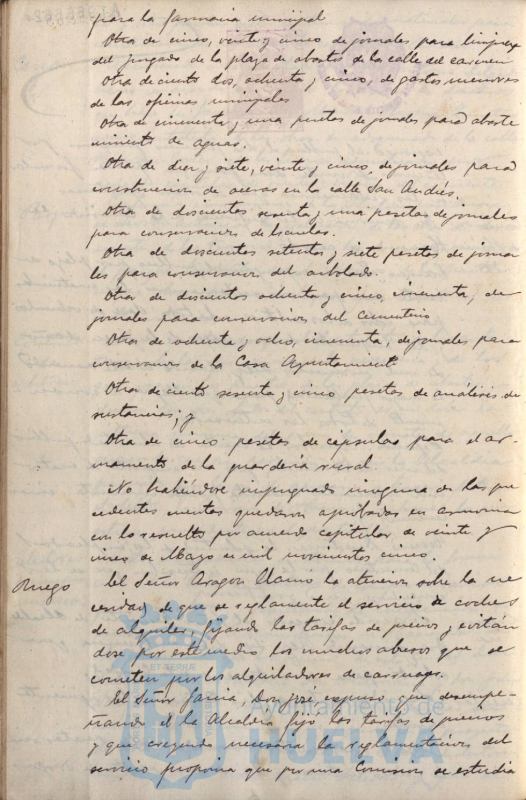 para la farmacia municipal
Otra de cinco, veinte y cinco de jornales para limpieza
del juzgado de la plaza de abastos de la calle del Carmen
Otra de ciento dos, ochenta y cinco, de gastos menores
de las oficinas municipales
Otra de cincuenta y una pesetas de jornales para abaste
cimiento de aguas.
Otra de diez y siete, veinte y cinco, de jornales para
construccion de aceras en la calle San Andrés.
Otra de doscientas sesenta y una pesetas de jornales
para conservacion de Escuelas.
Otra de doscientas setenta y siete pesetas de jorna
les para conservacion del arbolado.
Otra de doscientos ochenta y cinco, cincuenta, de
jornales para conservacion del Cementerio
Otra de ochenta y ocho, cincuenta, de jornales para
conservacion de la Casa Ayuntamiento
Otra de ciento sesenta y cinco pesetas de análisis de
sustancias; y
Otra de cinco pesetas de cápsulas para el ar-
mamento de la guarderia rural
No habiéndose impugnado ninguna de las pre
cedentes cuentas quedaron aprobadas en armonia
con lo resuelto por acuerdo capitular de veinte y
cinco de Mayo en mil novecientos cinco.
Ruego
El Señor Aragon llamó la atencion sobre la ne
cesidad de que se reglamente el servicio de coches
de alquiler, fijando las tarifas de precios y evitán
dose por este medio los muchos abusos que se
cometen por los alquiladores de carruages.
El Señor Garcia, Don José expuso que desempe-
ñando él la Alcaldia fijó las tarifas de precios
y que creyendo necesaria la reglamentacion del
servicio proponia que por una Comision se estudia
Ayuntamiento de
HUELVA